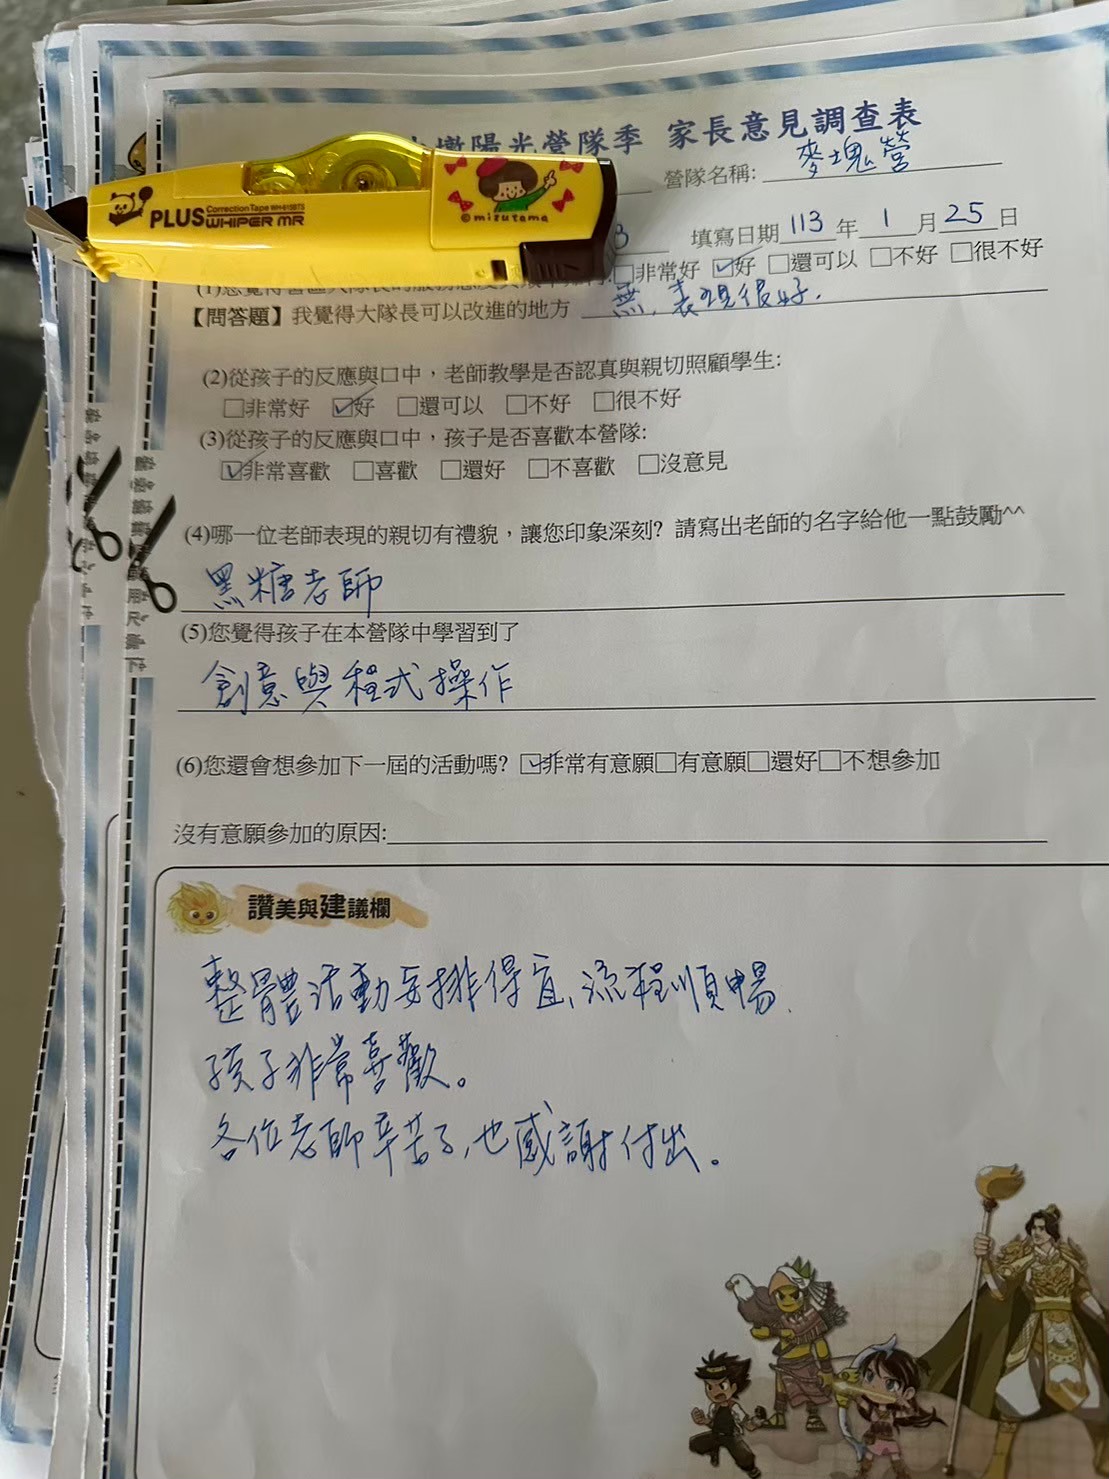 墩陽光營隊季 家長意見調查表
營隊名稱: 麥塊營
PLUS Correction Tape WH-615BTS
WHIPER MR
©mizutama
3 填寫日期 113 年 1 月 25 日
□非常好 ☑好 □還可以 □不好 □很不好
【問答題】我覺得大隊長可以改進的地方 無,表現很好.
(2)從孩子的反應與口中,老師教學是否認真與親切照顧學生:
□非常好 ☑好 □還可以 □不好 □很不好
(3)從孩子的反應與口中,孩子是否喜歡本營隊:
☑非常喜歡 □喜歡 □還好 □不喜歡 □沒意見
(4)哪一位老師表現的親切有禮貌,讓您印象深刻? 請寫出老師的名字給他一點鼓勵^^
黑糖老師
(5)您覺得孩子在本營隊中學習到了
創意與程式操作
(6)您還會想參加下一屆的活動嗎? ☑非常有意願□有意願□還好□不想參加
沒有意願參加的原因:
讚美與建議欄
整體活動安排得宜、流程順暢.
孩子非常喜歡。
各位老師辛苦了,也感謝付出。